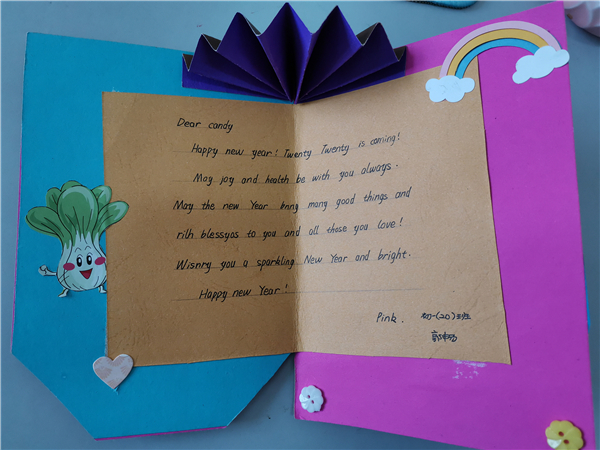 Dear candy
Happy new year! Twenty Twenty is coming!
May joy and health be with you always.
May the new Year bring many good things and
rilh blessyos to you and all those you love!
Wisnry you a sparkling New Year and bright.
Happy new Year!
Pink. 初一(20)班